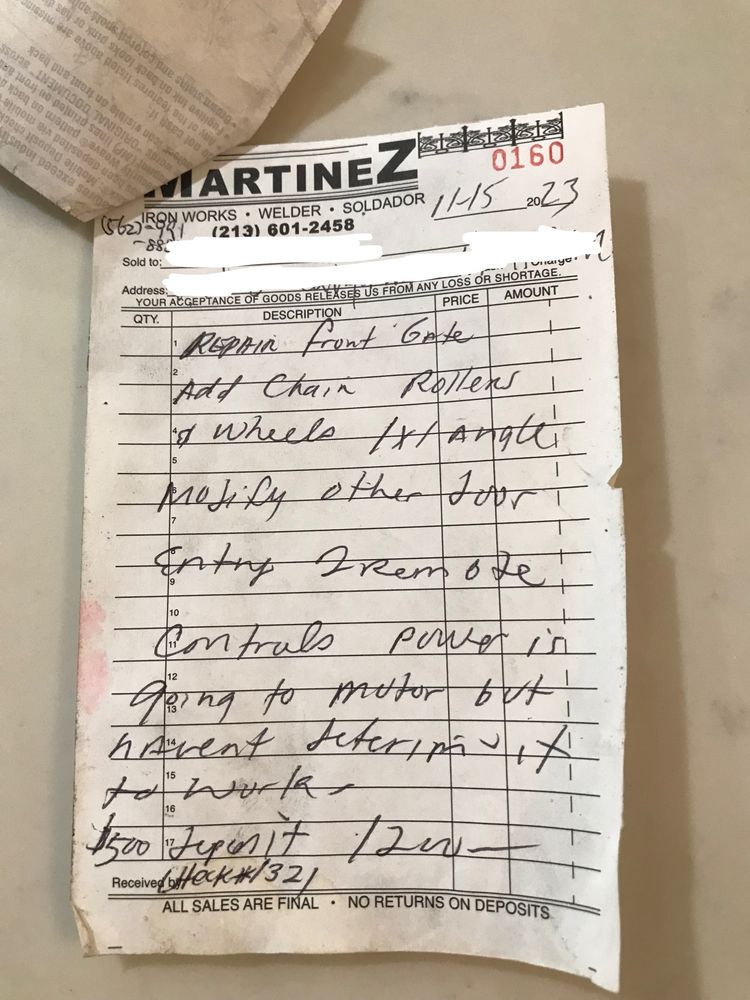 MARTINEZ
0160
IRON WORKS • WELDER • SOLDADOR
11-15 2023
(562)-991
(213) 601-2458
Sold to:
Address:
YOUR ACCEPTANCE OF GOODS RELEASES US FROM ANY LOSS OR SHORTAGE.
QTY. DESCRIPTION PRICE AMOUNT
1 REPAIR front Gate
2
Add Chain Rollers
4 & Wheels 1x1 Angle
5
6 Modify other door
7
8 Entry 2 Remote
9
10
11 Controls power is
12
13 going to motor but
14 hAvent
15 to work
16
$500 17 deposit 1200
Received by Check#1321
ALL SALES ARE FINAL • NO RETURNS ON DEPOSITS